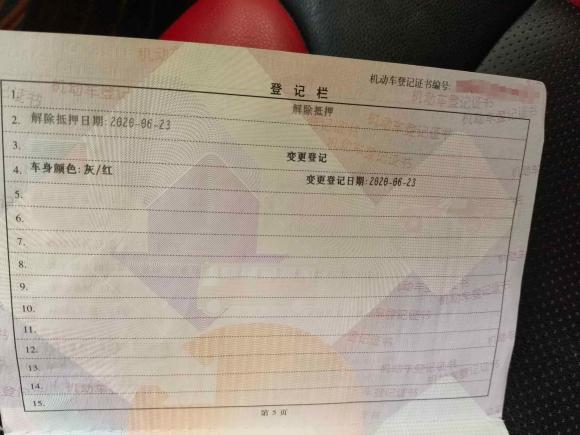 机动车登记证书编号:
登记栏
1. 解除抵押
2. 解除抵押日期:2020-06-23
3. 变更登记
4. 车身颜色:灰/红 变更登记日期:2020-06-23
5.
6.
7.
8.
9.
10.
11.
12.
13.
14.
15.
第 5 页